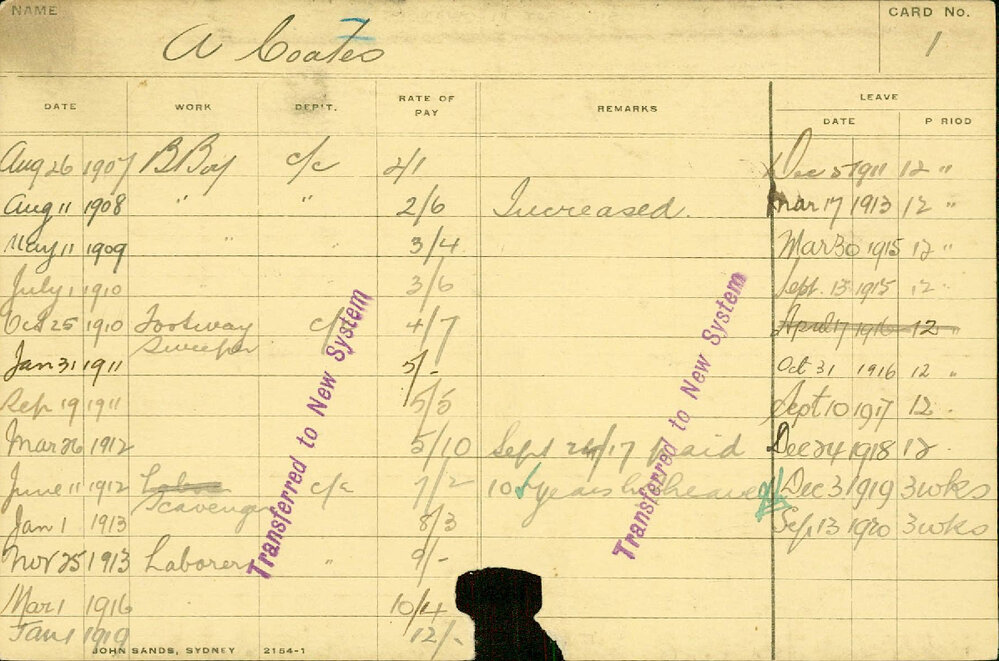 NAME
CARD No.
A Coates
1
DATE WORK DEP'T. RATE OF PAY REMARKS LEAVE
DATE PERIOD
Aug 26 1907 B Boy c/c 2/1 Dec 5 1911 12 "
Aug 11 1908 " " 2/6 Increased. Mar 17 1913 12 "
May 11 1909 " 3/4 Mar 30 1915 12 "
July 1 1910 3/6 Sept. 13 1915 12 "
Oct 25 1910 Footway Sweeper 4/7 April 17 1916 12 "
Jan 31 1911 5/- Oct 31 1916 12 "
Sep 19 1911 5/5 Sept 10 1917 12 "
Mar 26 1912 5/10 Sept 24/17 paid Dec 24 1918 12
June 11 1912 Labor Scavenger c/c 7/2 10 years Dec 3 1919 3 wks
Jan 1 1913 8/3 Sep 13 1920 3 wks
Nov 25 1913 Laborer " 9/-
Mar 1 1916 10/4
Jan 1 1919 12/-
Transferred to New System
Transferred to New System
JOHN SANDS, SYDNEY 2154-1